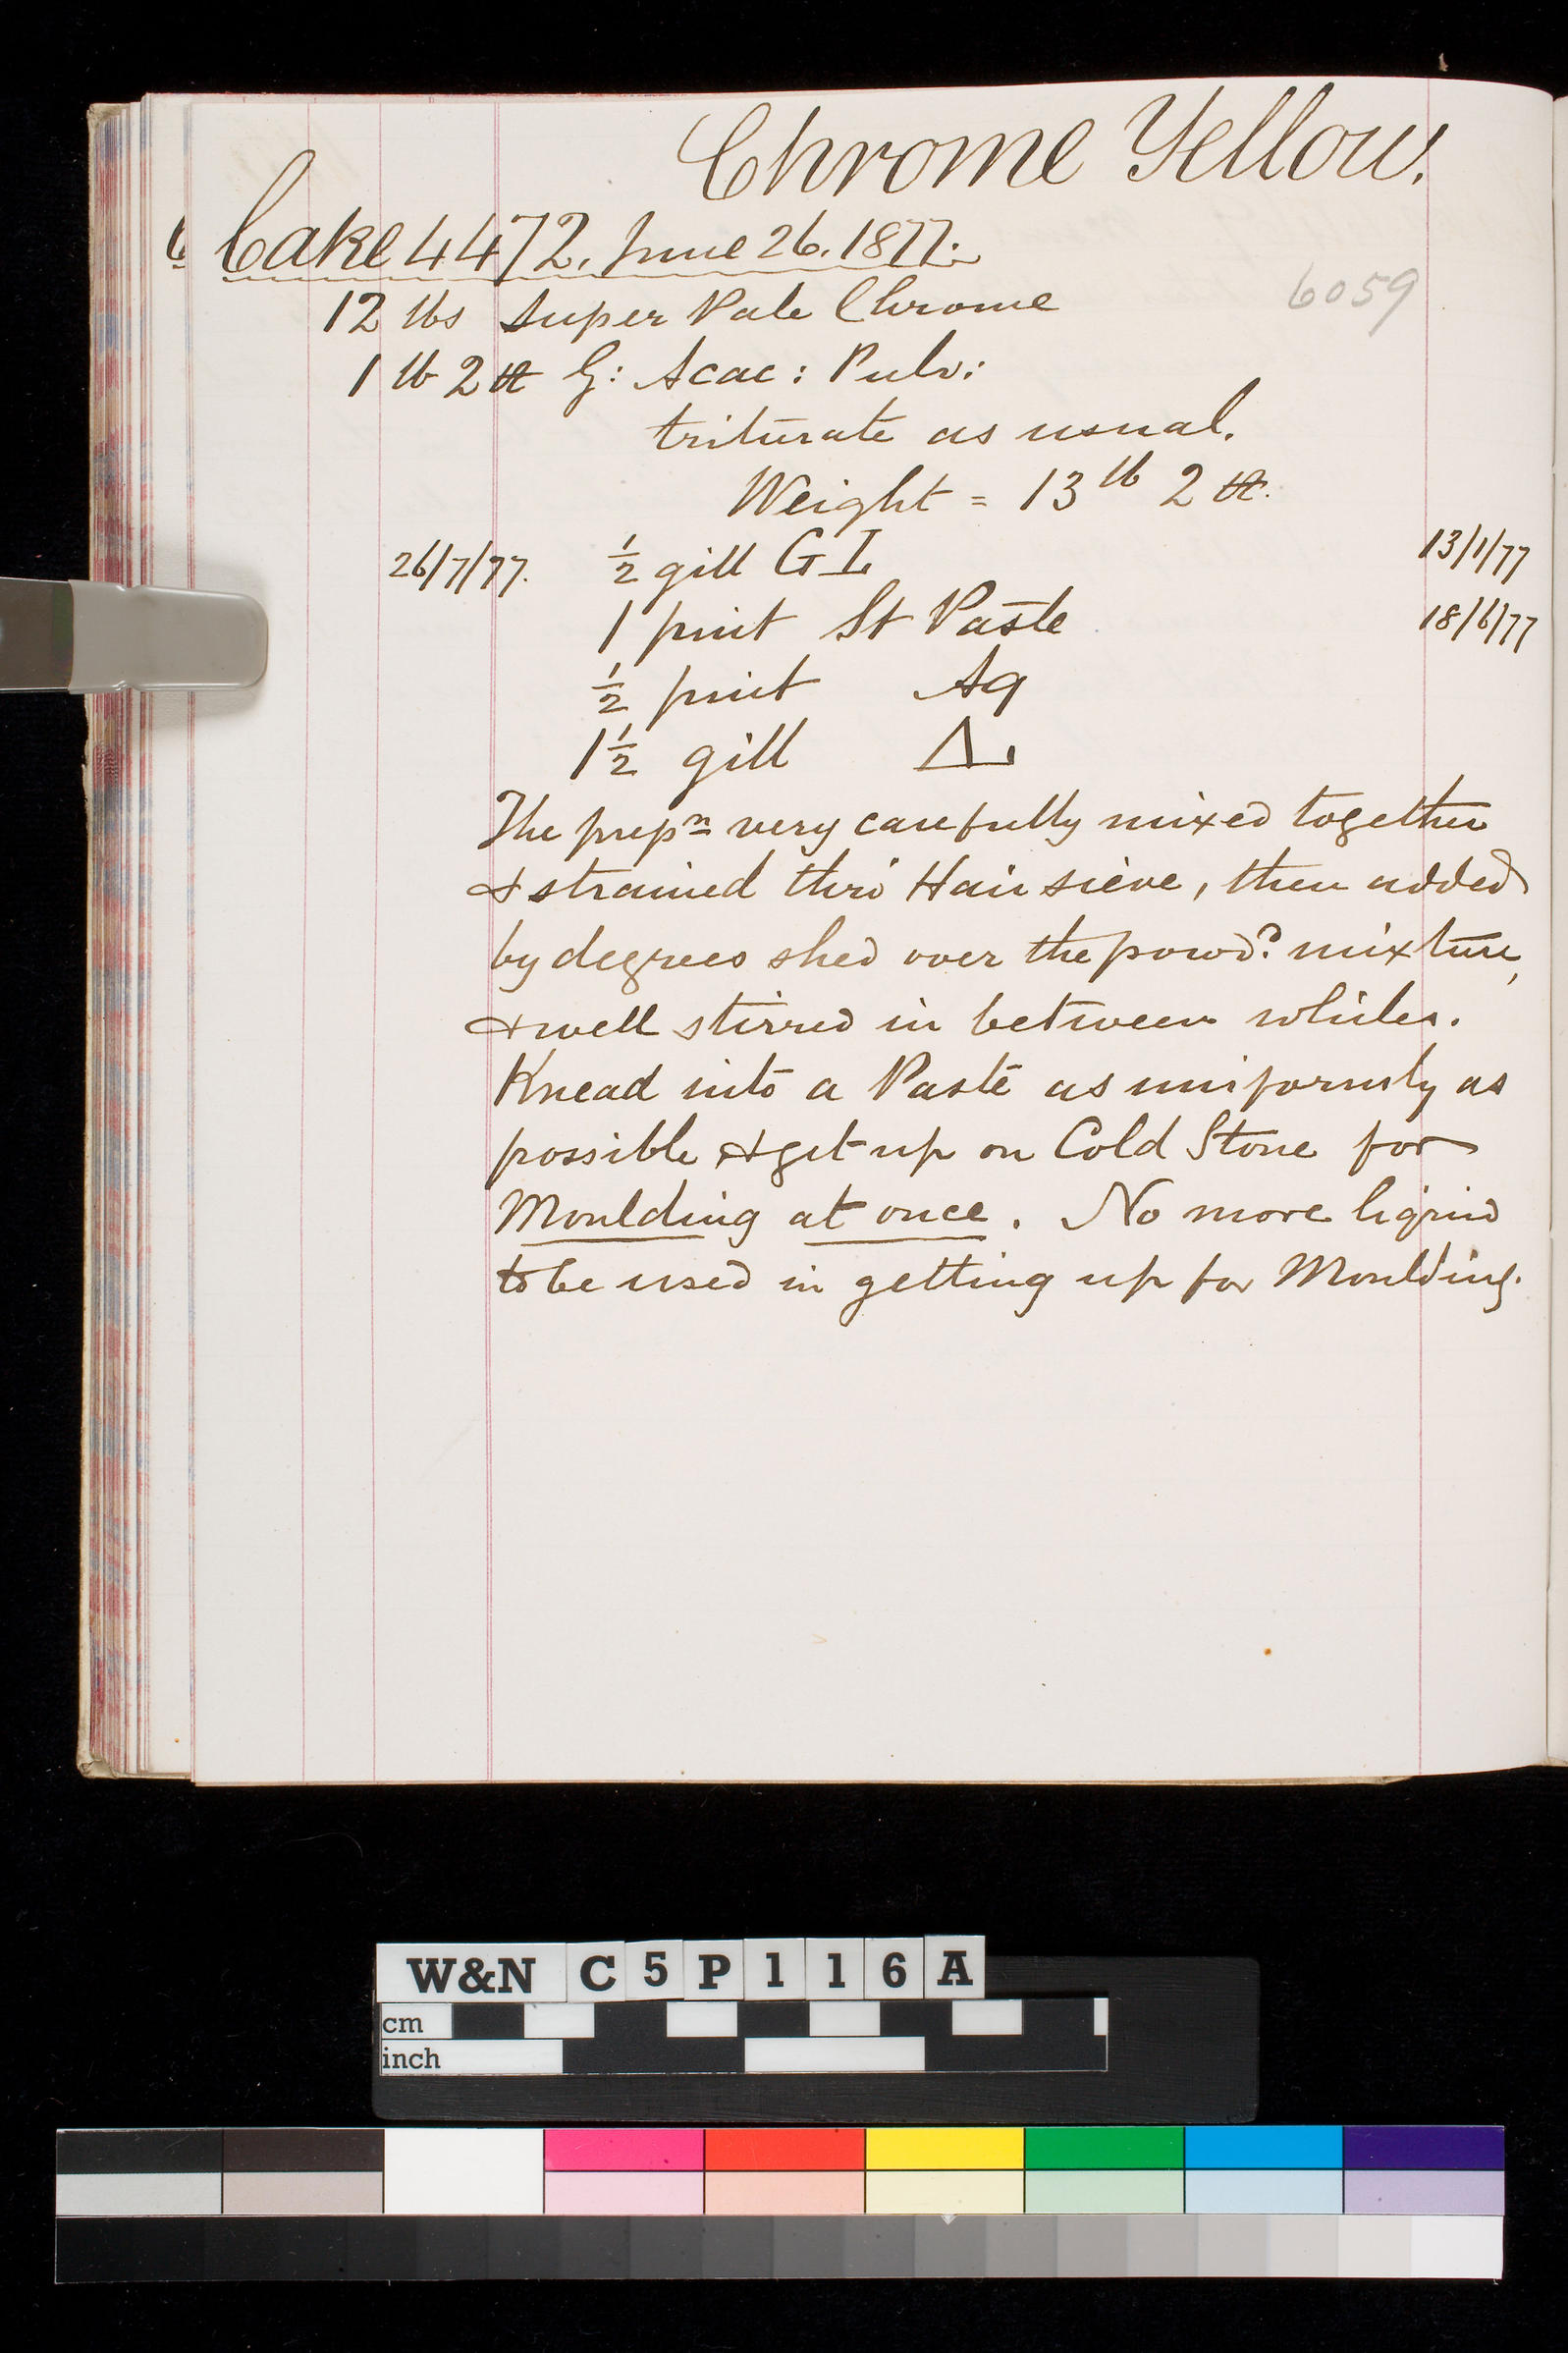 Chrome Yellow.
Cake 4472. June 26. 1877.
6059
12 lbs Super Pale Chrome
1 lb 2 G: Acac: Pulv:
triturate as usual.
Weight = 13 lb 2
26/7/77. ½ gill GL 13/1/77
1 pint St Paste 18/6/77
½ pint Aq
1½ gill
The prepn very carefully mixed together
& strained thro' Hair sieve, then added
by degrees shed over the powd. mixture,
& well stirred in between whiles.
Knead into a Paste as uniformly as
possible & get up on Cold Stone for
Moulding at once. No more liquid
to be used in getting up for Moulding.
W&N C5P116A
cm
inch